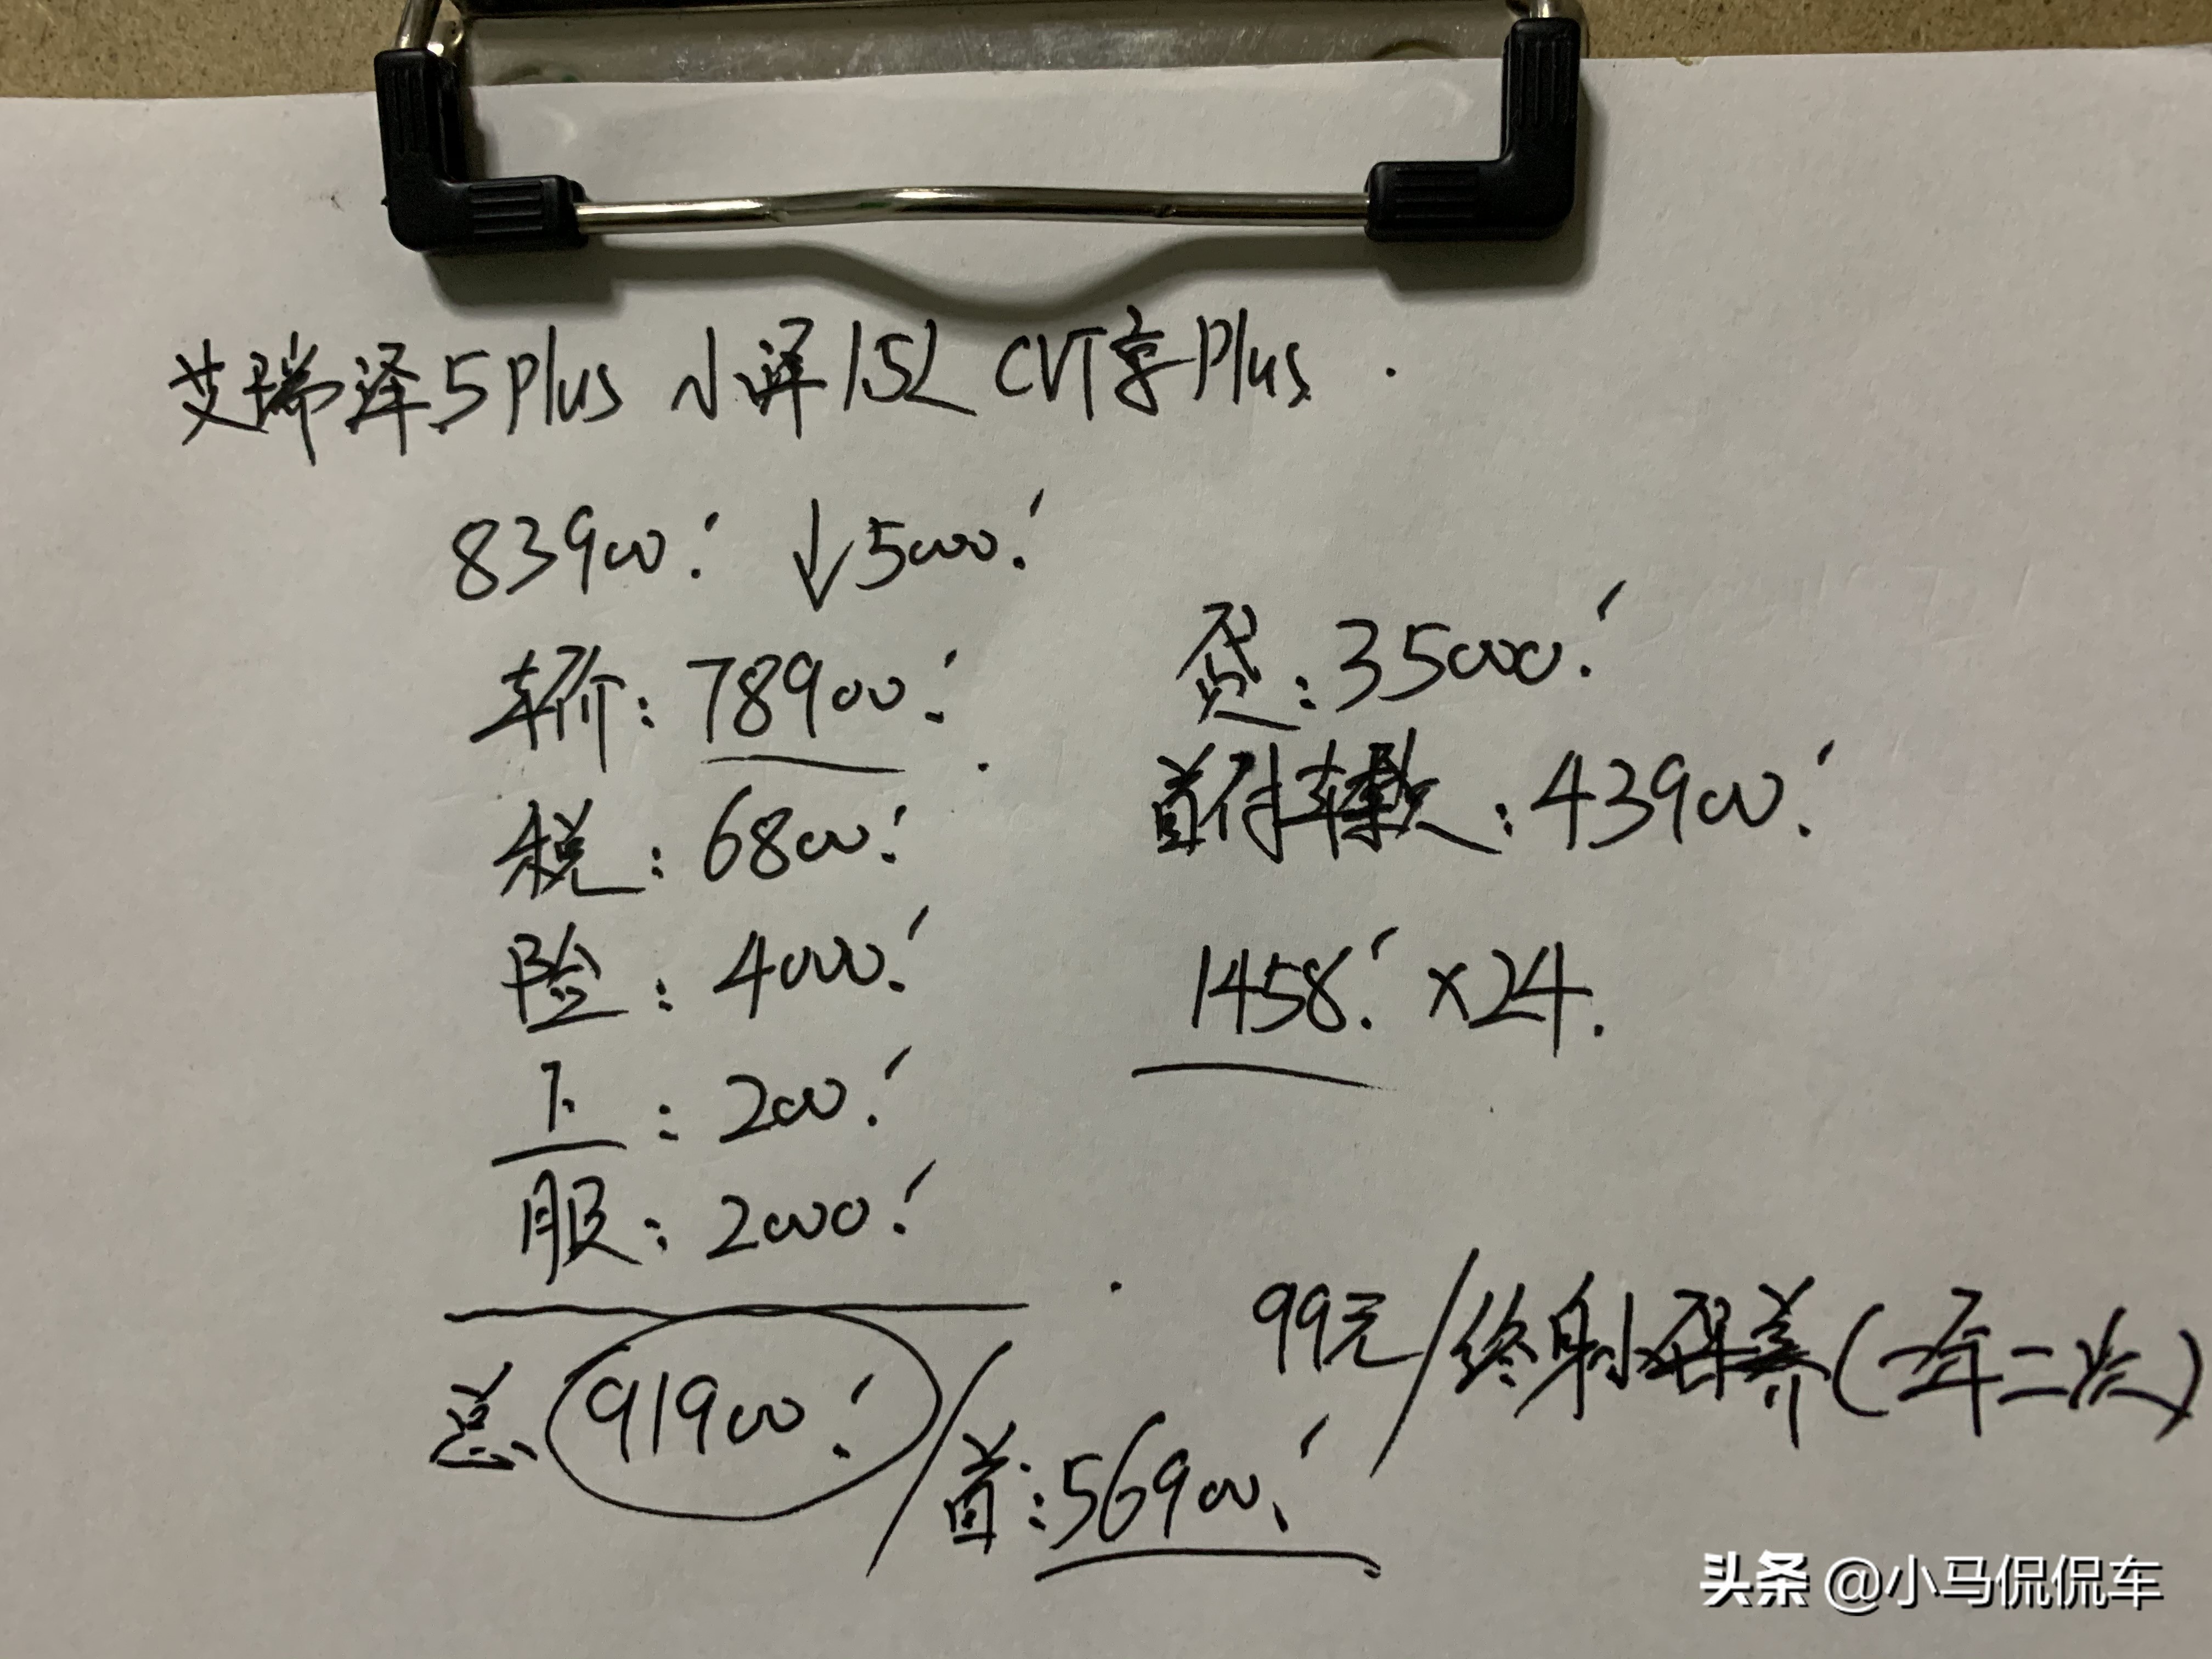 艾瑞泽5Plus 小屏1.5L CVT享Plus.
83900. ↓5000.
车价:78900.
税:6800.
险:4000.
上:200.
服:2000.
总 91900. / 首:56900.
贷:35000.
首付车款:43900.
1458. ×24.
99元/终身小保养(一年二次)
头条 @小马侃侃车